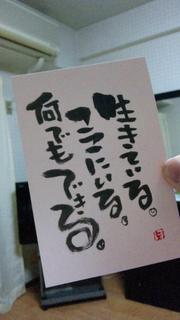 生きている。
ここにいる。
何でもできる。